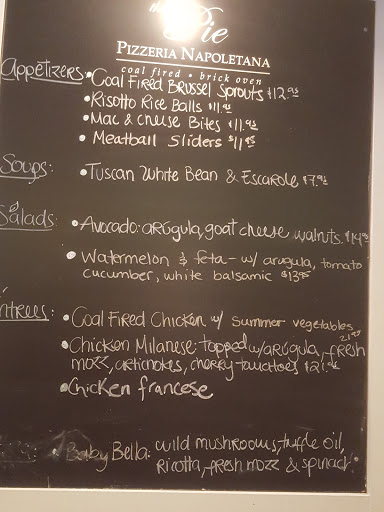 the
Pie
PIZZERIA NAPOLETANA
coal fired • brick oven
Appetizers: • Coal Fired Brussel Sprouts $12.95
• Risotto Rice Balls $11.95
• Mac & cheese Bites $11.95
• Meatball Sliders $11.95
Soups: • Tuscan White Bean & Escarole $7.95
Salads: • Avocado: arugula, goat cheese walnuts. $14.95
• Watermelon & feta - w/ arugula, tomato
cucumber, white balsamic $13.95
ntrees: • Coal Fired Chicken w/ summer vegetables
21.95
• Chicken Milanese: topped w/arugula, fresh
mozz, artichokes, cherry tomatoes $21.95
• Chicken francese
• Baby Bella: wild mushrooms, truffle oil,
Ricotta, fresh mozz & spinach